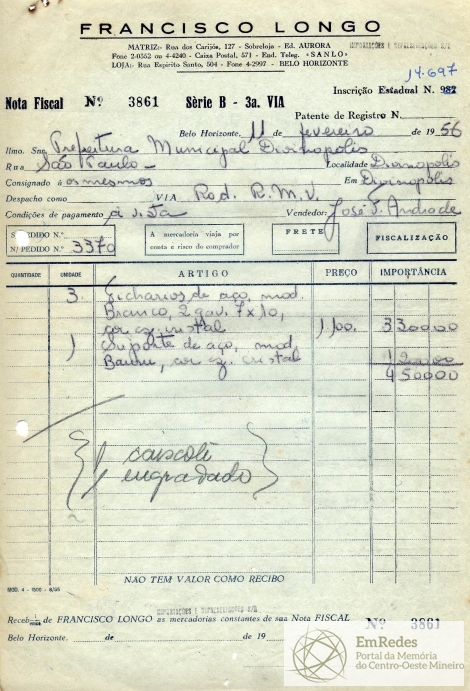 FRANCISCO LONGO
IMPORTAÇÕES E REPRESENTAÇÕES S/A
MATRIZ: Rua dos Carijós, 127 - Sobreloja - Ed. AURORA
Fone 2-0552 ou 4-4240 - Caixa Postal, 571 - End. Teleg. "SANLO"
LOJA: Rua Espírito Santo, 504 - Fone 4-2997 - BELO HORIZONTE
14-697
Inscrição Estadual N. 982
Nota Fiscal Nº 3861 Série B - 3a. VIA
Patente de Registro N.
Belo Horizonte, 11 de fevereiro de 1956
Ilmo. Snr. Prefeitura Municipal Divinopolis
Rua São Paulo - Localidade Divinopolis
Consignado à os mesmos Em Divinopolis
Despacho como VIA Rod. R.M.V.
Condições de pagamento à vista Vendedor: José F. Andrade
S/PEDIDO N.º
N/PEDIDO N.º 3370
A mercadoria viaja por
conta e risco do comprador
FRETE
FISCALIZAÇÃO
QUANTIDADE UNIDADE ARTIGO PREÇO IMPORTÂNCIA
3 ficharios de aço, mod.
Branco, 2 gav. 7 x 10,
cor cz. cristal 1.100. 330000
1 suporte de aço, mod.
Bauru, cor cz. cristal 120000
450000
engradado
NÃO TEM VALOR COMO RECIBO
MOD. 4 - 1500 - 8/55
IMPORTAÇÕES E REPRESENTAÇÕES S/A
Receb de FRANCISCO LONGO as mercadorias constantes de sua Nota FISCAL Nº 3861
Belo Horizonte. de de 19
EmRedes
Portal da Memória
do Centro-Oeste Mineiro